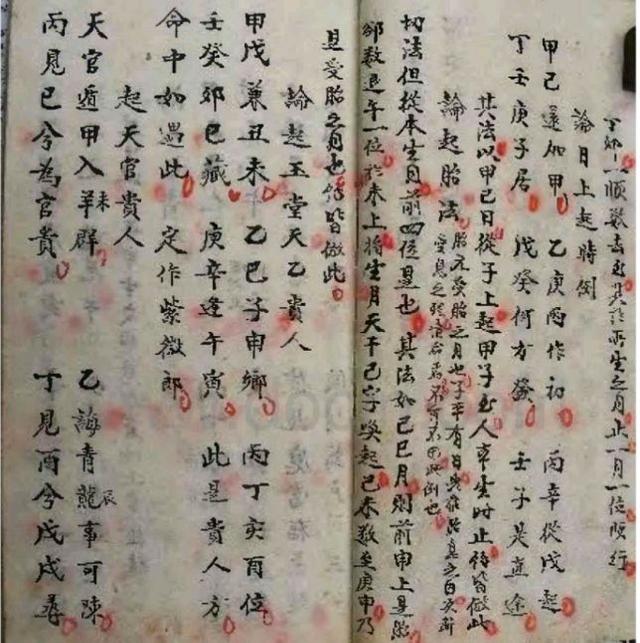 如一順數去至其於所生之月止一月一位順行
論日上起時例
甲己還加甲 乙庚丙作初 丙辛從戊起
丁壬庚子居 戊癸何方發 壬子是直途
其法以甲己日從子上起甲子至人本生時止餘皆倣此
論起胎法 胎元受胎之月也子平有曰
切法但從本生月前四位是也 其法如己巳月則前申上是胎
卻數退午一位於未上將生月天干己字喚起己未數至庚申乃
是受胎之月也餘皆倣此
論起玉堂天乙貴人
甲戊兼丑未 乙己子申鄉 丙丁亥酉位
壬癸卯巳藏 庚辛逢午寅 此是貴人方
命中如遇此 定作紫微郎
起天官貴人
天官遁甲入羊未群 乙誨青龍辰事可陳
丙見巳兮為官貴 丁見酉兮戊戌尋